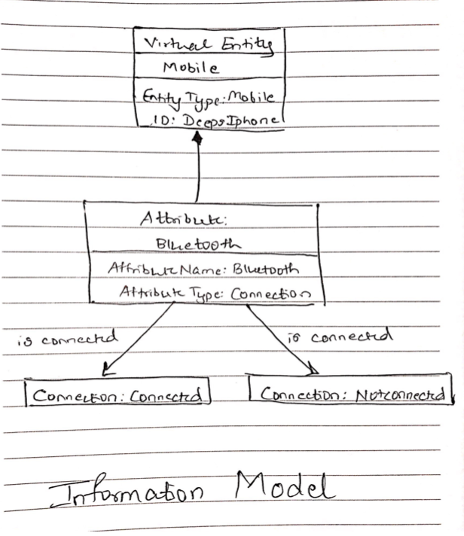 Virtual Entity
Mobile
Entity Type: Mobile
ID: DeepsIphone
Attribute:
Bluetooth
Attribute Name: Bluetooth
Attribute Type: Connection
is connected
is connected
Connection: Connected
Connection: Notconnected
Information Model